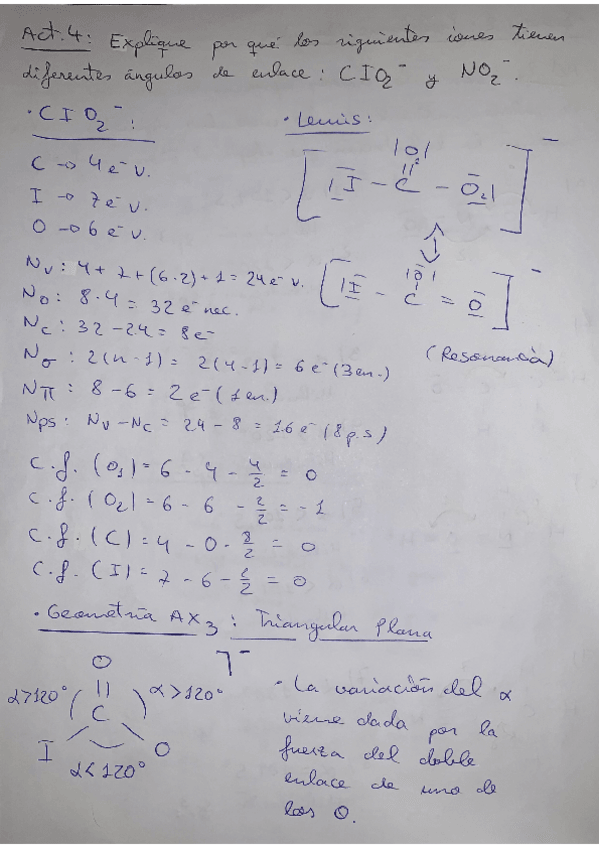 Act. 4: Explique por qué los siguientes iones tienen
diferentes ángulos de enlace: CIO₂⁻ y NO₂⁻.
· CIO₂⁻:
C → 4 e⁻ v.
I → 7 e⁻ v.
O → 6 e⁻ v.
Nv: 4 + 7 + (6·2) + 1 = 24 e⁻ v.
No: 8·4 = 32 e⁻ nec.
Nc: 32 - 24 = 8e⁻
Nσ: 2(n-1) = 2(4-1) = 6 e⁻ (3 en.)
Nπ: 8 - 6 = 2 e⁻ (1 en.)
Nps: Nv - Nc = 24 - 8 = 16 e⁻ (8 p.s)
· Lewis:
|O|
I - C - O₂ -
|O|
I - C = O -
(Resonancia)
C.f. (O₁) = 6 - 4 - 4/2 = 0
C.f. (O₂) = 6 - 6 - 2/2 = -1
C.f. (C) = 4 - 0 - 8/2 = 0
C.f. (I) = 7 - 6 - 2/2 = 0
· Geometría AX₃: Triangular Plana
O ⁻
α>120° C α>120°
I O
α<120°
· La variación del α
viene dada por la
fuerza del doble
enlace de uno de
los O.